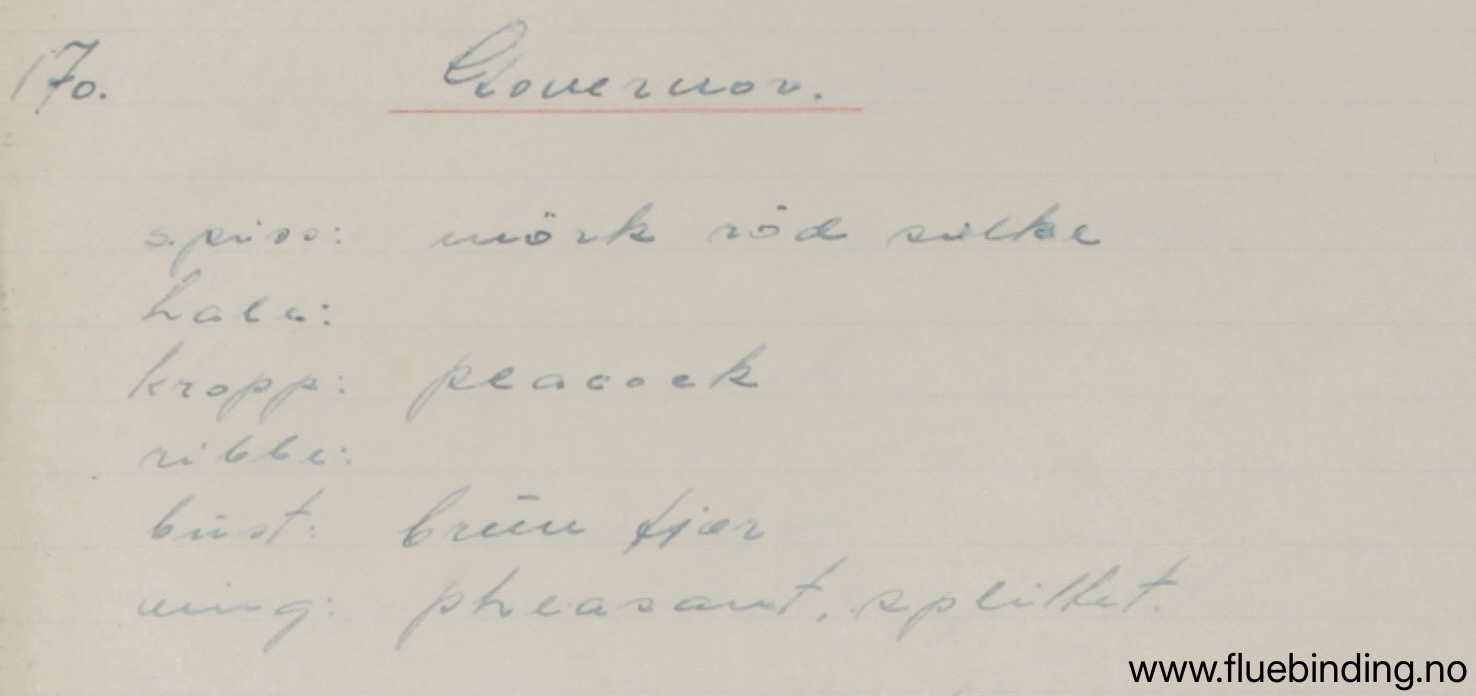 170. Governor.
spiss: mörk röd silke
hale:
kropp: peacock
ribbe:
bust: brun fjær
ving: pheasant, splittet.
www.fluebinding.no